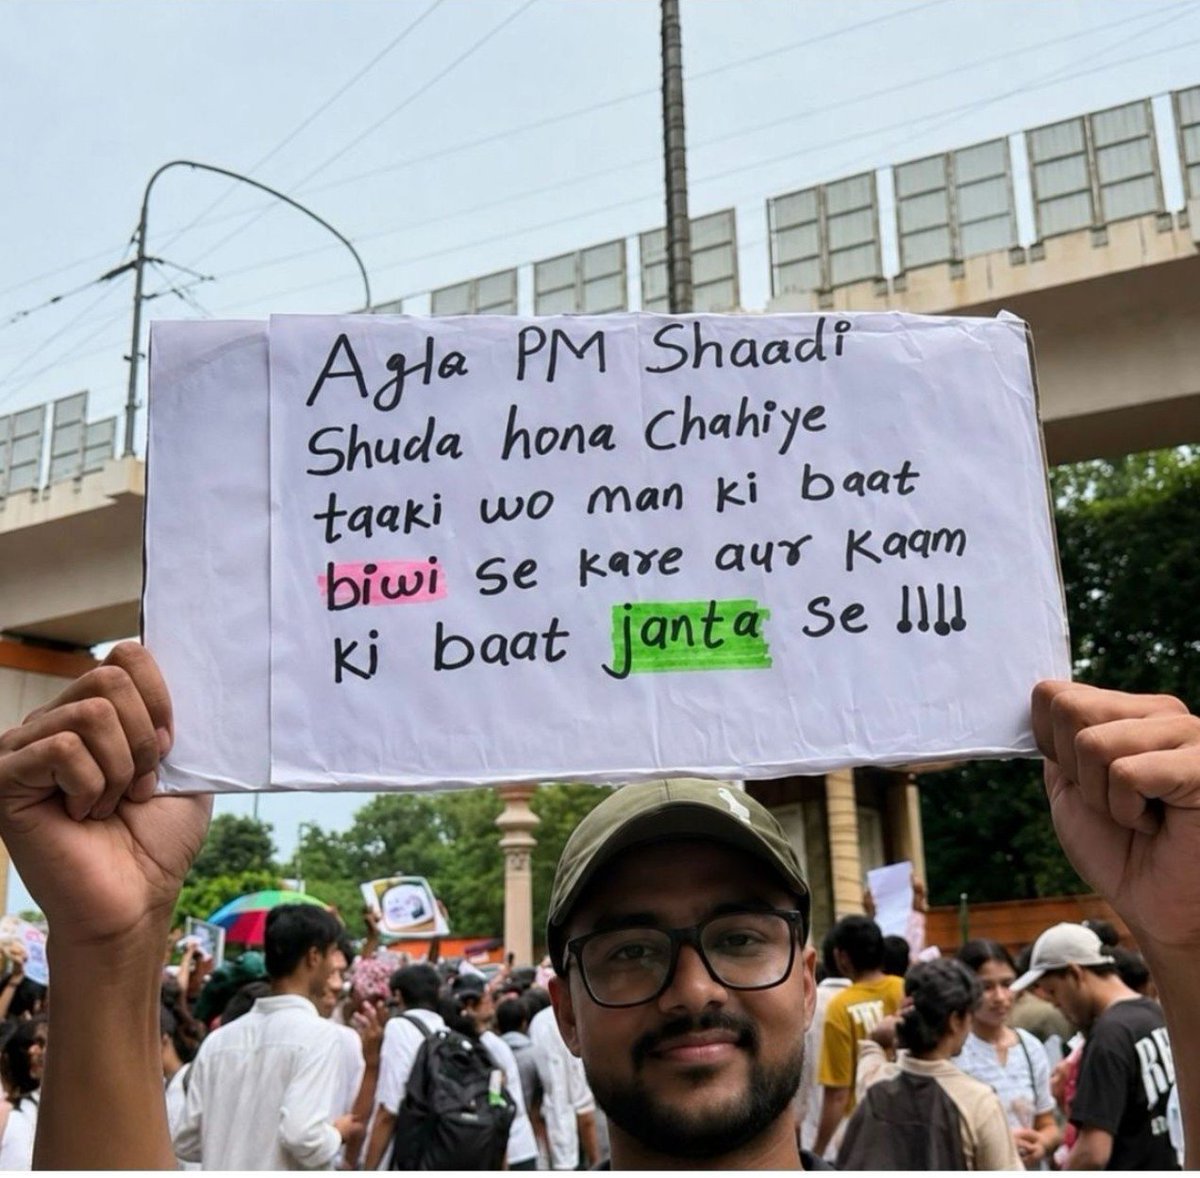 Agla PM Shaadi
Shuda hona Chahiye
taaki wo man ki baat
biwi se kare aur Kaam
ki baat janta se !!!!